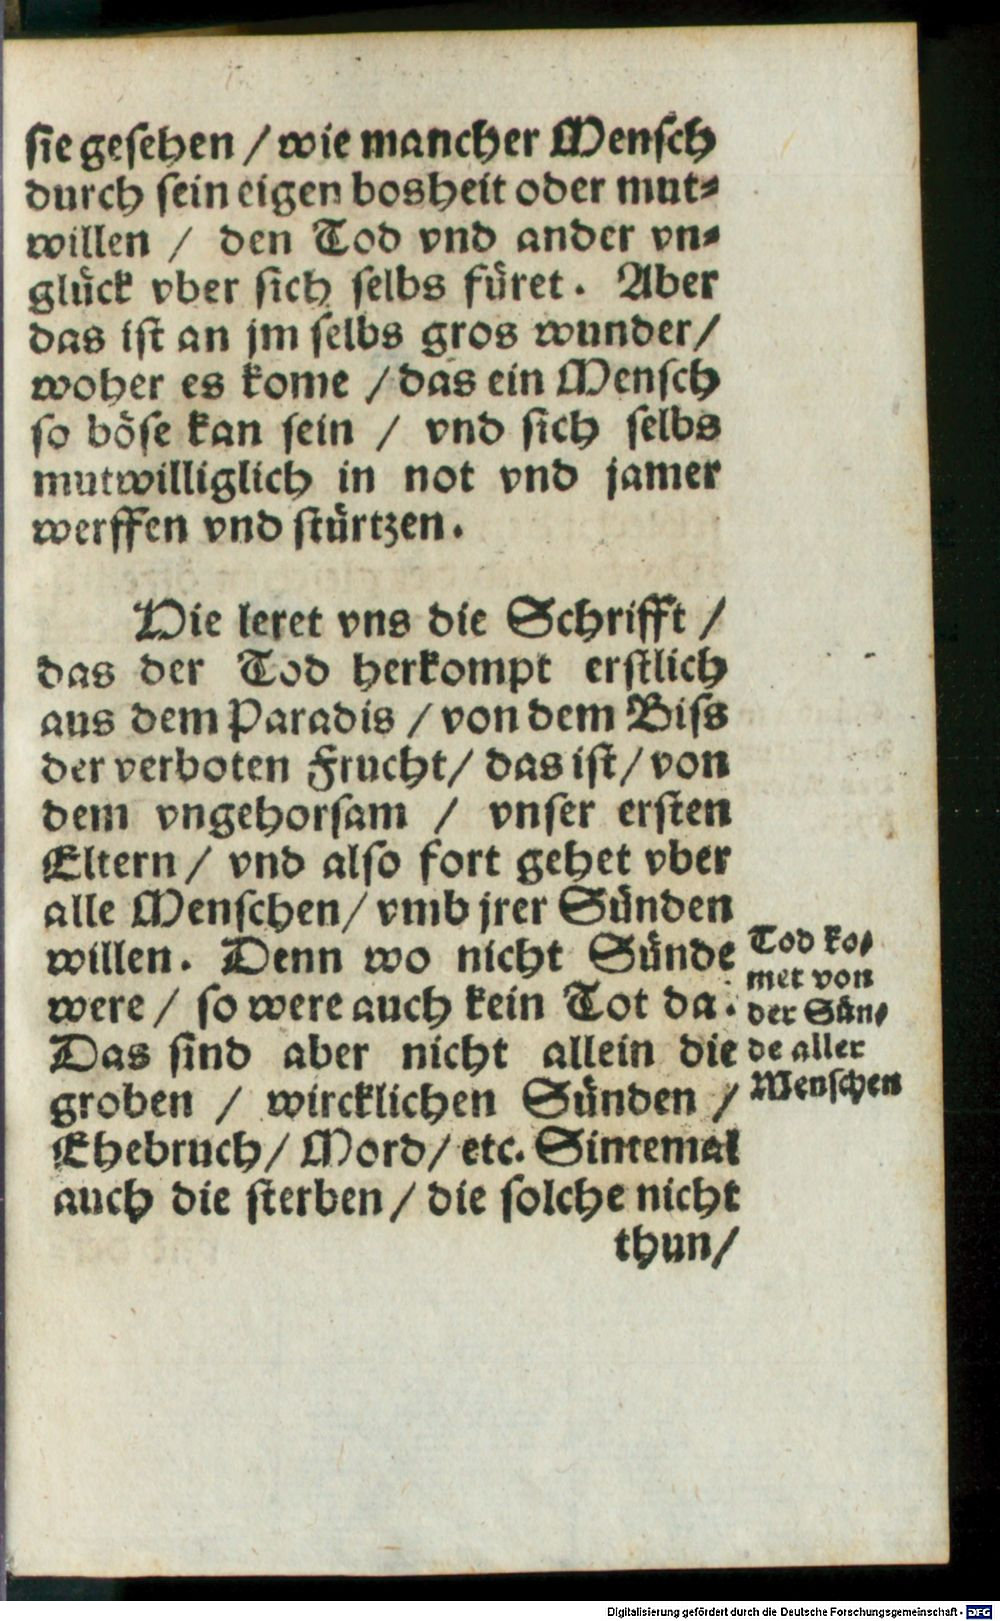 sie gesehen / wie mancher Mensch
durch sein eigen bosheit oder mut⸗
willen / den Tod vnd ander vn⸗
glück vber sich selbs füret. Aber
das ist an jm selbs gros wunder /
woher es kome / das ein Mensch
so böse kan sein / vnd sich selbs
mutwilliglich in not vnd jamer
werffen vnd stürtzen.
Hie leret vns die Schrifft /
das der Tod herkompt erstlich
aus dem Paradis / von dem Biss
der verboten Frucht / das ist / von
dem vngehorsam / vnser ersten
Eltern / vnd also fort gehet vber
alle Menschen / vmb jrer Sünden
willen. Denn wo nicht Sünde
were / so were auch kein Tot da.
Das sind aber nicht allein die
groben / wircklichen Sünden /
Ehebruch / Mord / etc. Sintemal
auch die sterben / die solche nicht
thun /
Tod ko⸗
met von
der Sün⸗
de aller
Menschen
Digitalisierung gefördert durch die Deutsche Forschungsgemeinschaft - DFG